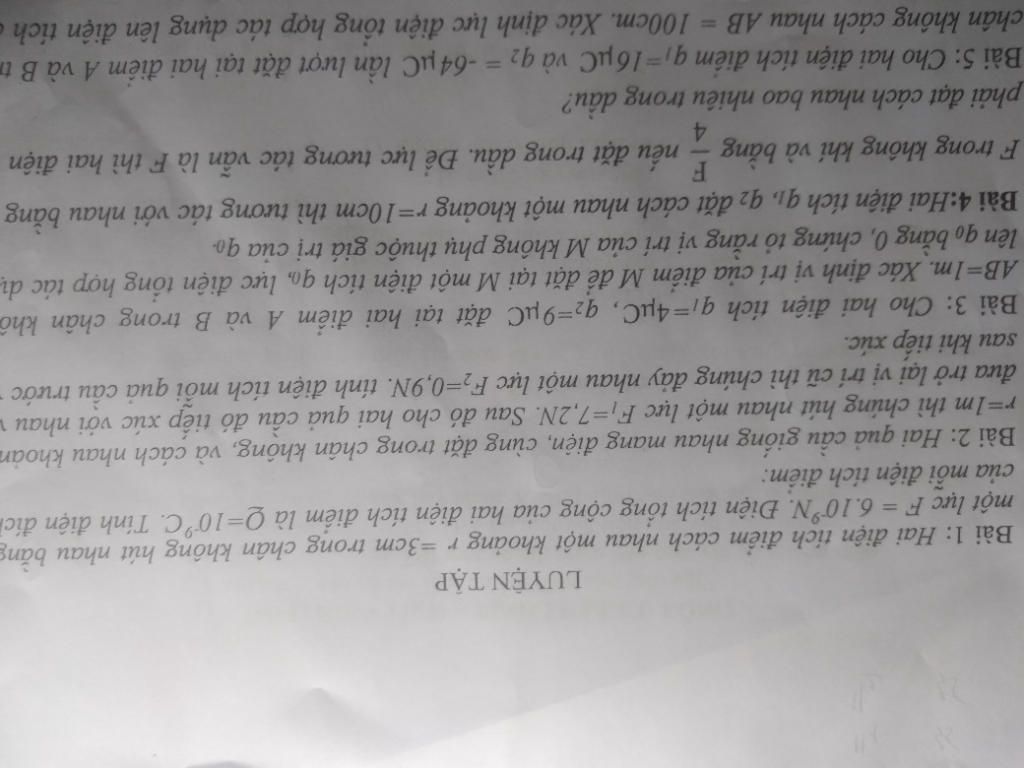 LUYỆN TẬP
Bài 1: Hai điện tích điểm cách nhau một khoảng r =3cm trong chân không hút nhau bằng
một lực F = 6.10⁻⁹N. Điện tích tổng cộng của hai điện tích điểm là Q=10⁻⁹C. Tính điện đích
của mỗi điện tích điểm:
Bài 2: Hai quả cầu giống nhau mang điện, cùng đặt trong chân không, và cách nhau khoản
r=1m thì chúng hút nhau một lực F₁=7,2N. Sau đó cho hai quả cầu đó tiếp xúc với nhau v
đưa trở lại vị trí cũ thì chúng đẩy nhau một lực F₂=0,9N. tính điện tích mỗi quả cầu trước
sau khi tiếp xúc.
Bài 3: Cho hai điện tích q₁=4µC, q₂=9µC đặt tại hai điểm A và B trong chân khô
AB=1m. Xác định vị trí của điểm M để đặt tại M một điện tích q₀, lực điện tổng hợp tác dụ
lên q₀ bằng 0, chứng tỏ rằng vị trí của M không phụ thuộc giá trị của q₀.
Bài 4:Hai điện tích q₁, q₂ đặt cách nhau một khoảng r=10cm thì tương tác với nhau bằng
F trong không khí và bằng F/4 nếu đặt trong dầu. Để lực tương tác vẫn là F thì hai điện
phải đạt cách nhau bao nhiêu trong dầu?
Bài 5: Cho hai điện tích điểm q₁=16µC và q₂ = -64µC lần lượt đặt tại hai điểm A và B tr
chân không cách nhau AB = 100cm. Xác định lực điện tổng hợp tác dụng lên điện tích